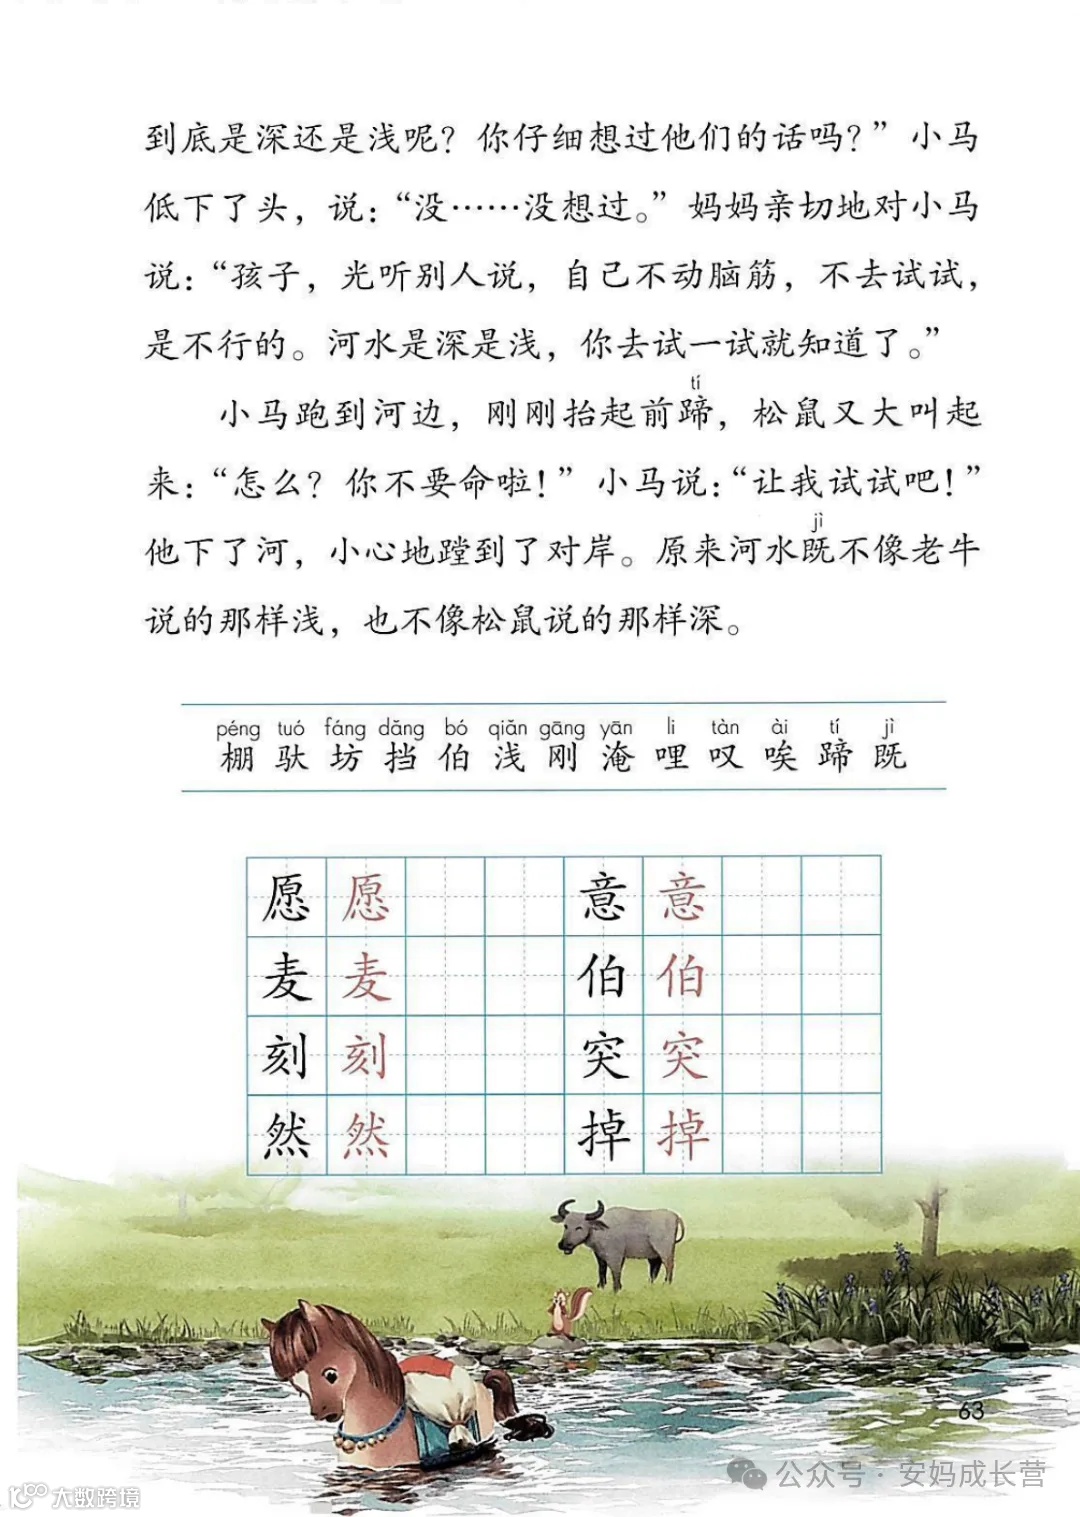 到底是深还是浅呢？你仔细想过他们的话吗？”小马
低下了头，说：“没……没想过。”妈妈亲切地对小马
说：“孩子，光听别人说，自己不动脑筋，不去试试，
是不行的。河水是深是浅，你去试一试就知道了。”
tí
小马跑到河边，刚刚抬起前蹄，松鼠又大叫起
来：“怎么？你不要命啦！”小马说：“让我试试吧！”
jì
他下了河，小心地蹚到了对岸。原来河水既不像老牛
说的那样浅，也不像松鼠说的那样深。
péng tuó fáng dǎng bó qiǎn gāng yān li tàn ài tí jì
棚 驮 坊 挡 伯 浅 刚 淹 哩 叹 唉 蹄 既
愿 愿 意 意
麦 麦 伯 伯
刻 刻 突 突
然 然 掉 掉
63
公众号·安妈成长营
大数跨境